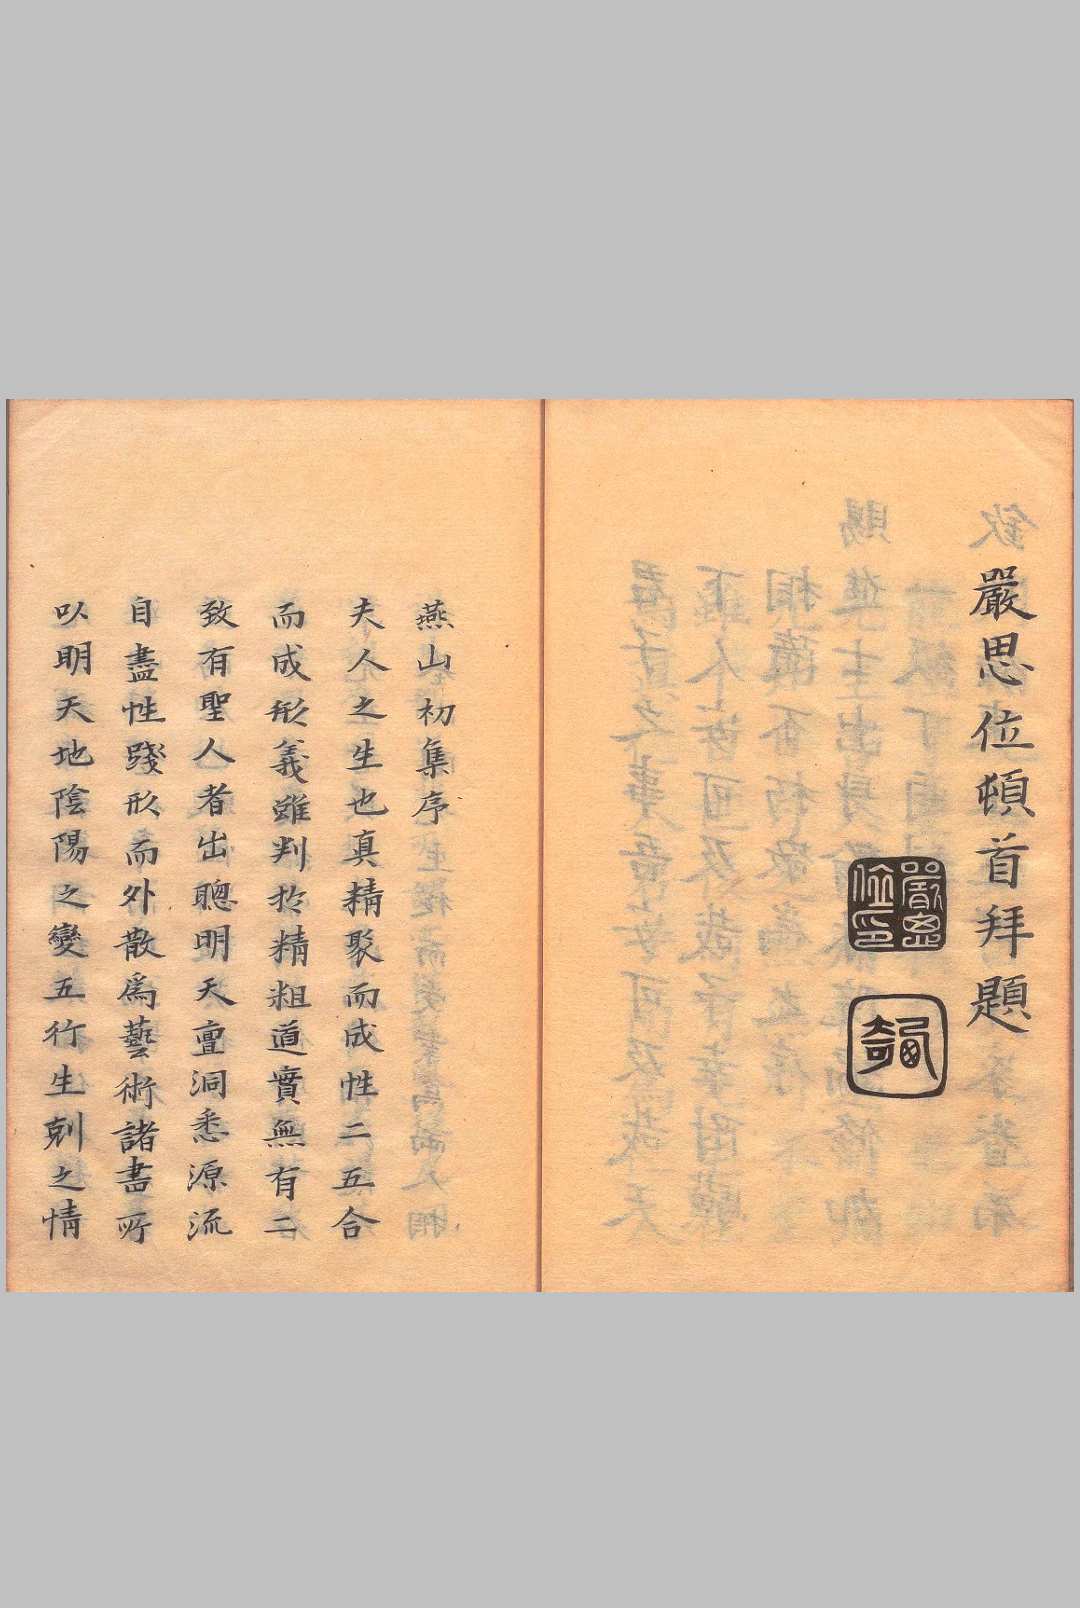 嚴思位頓首拜題
嚴思
位印
燕山初集序
夫人之生也真精聚而成性二五合
而成形義雖判於精粗道實無有二
致有聖人者出聰明天亶洞悉源流
自盡性踐形而外散為藝術諸書所
以明天地陰陽之變五行生剋之情